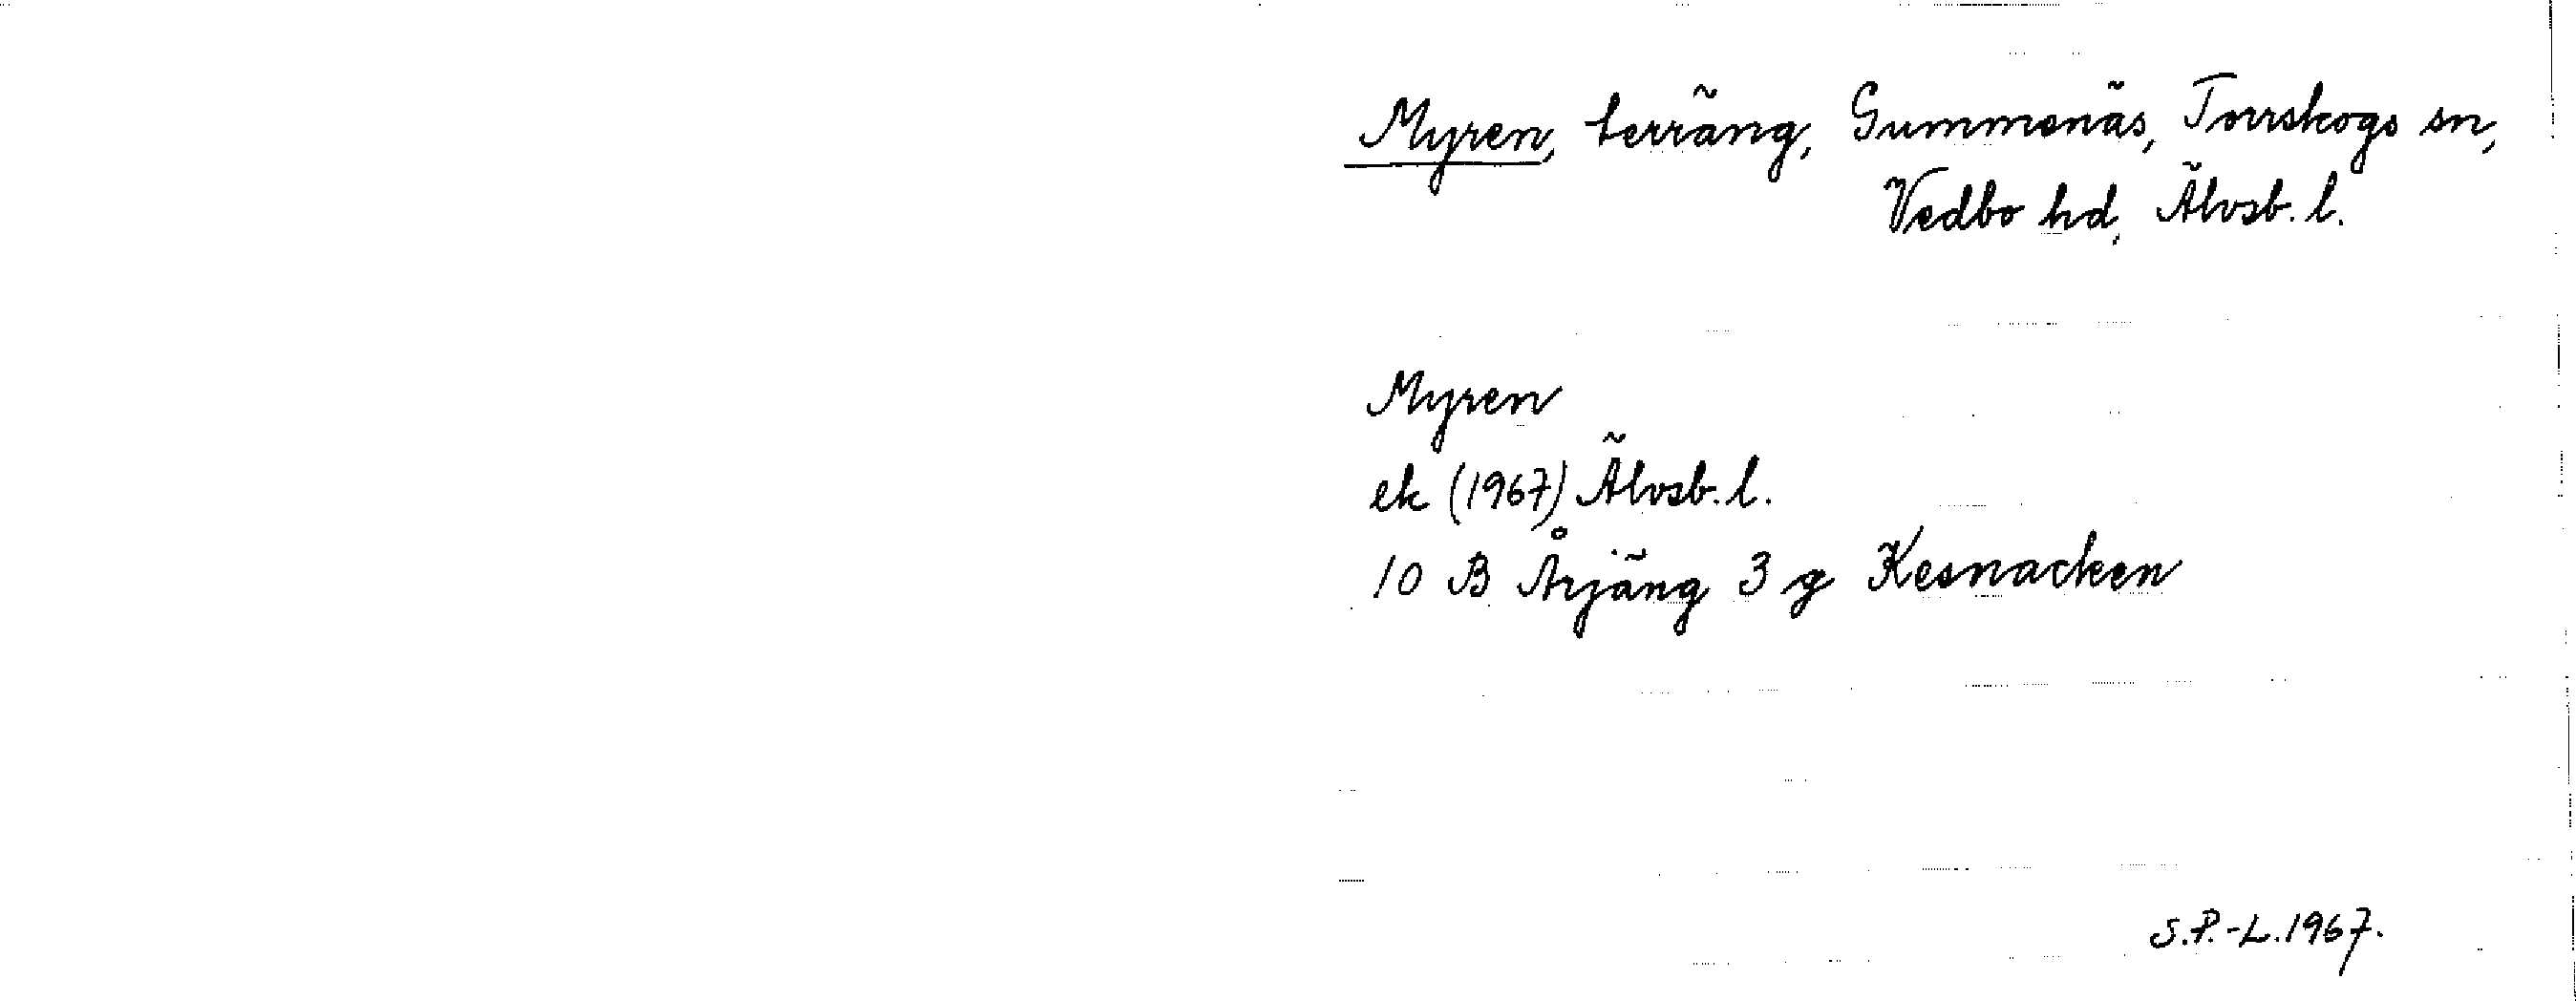 Myren, terräng, Gummenäs, Torrskogs sn,
Vedbo hd, Älvsb. l.
Myren
ek (1967) Älvsb. l.
10 B Årjäng 3 g Kesnacken
S.P.-L. 1967.